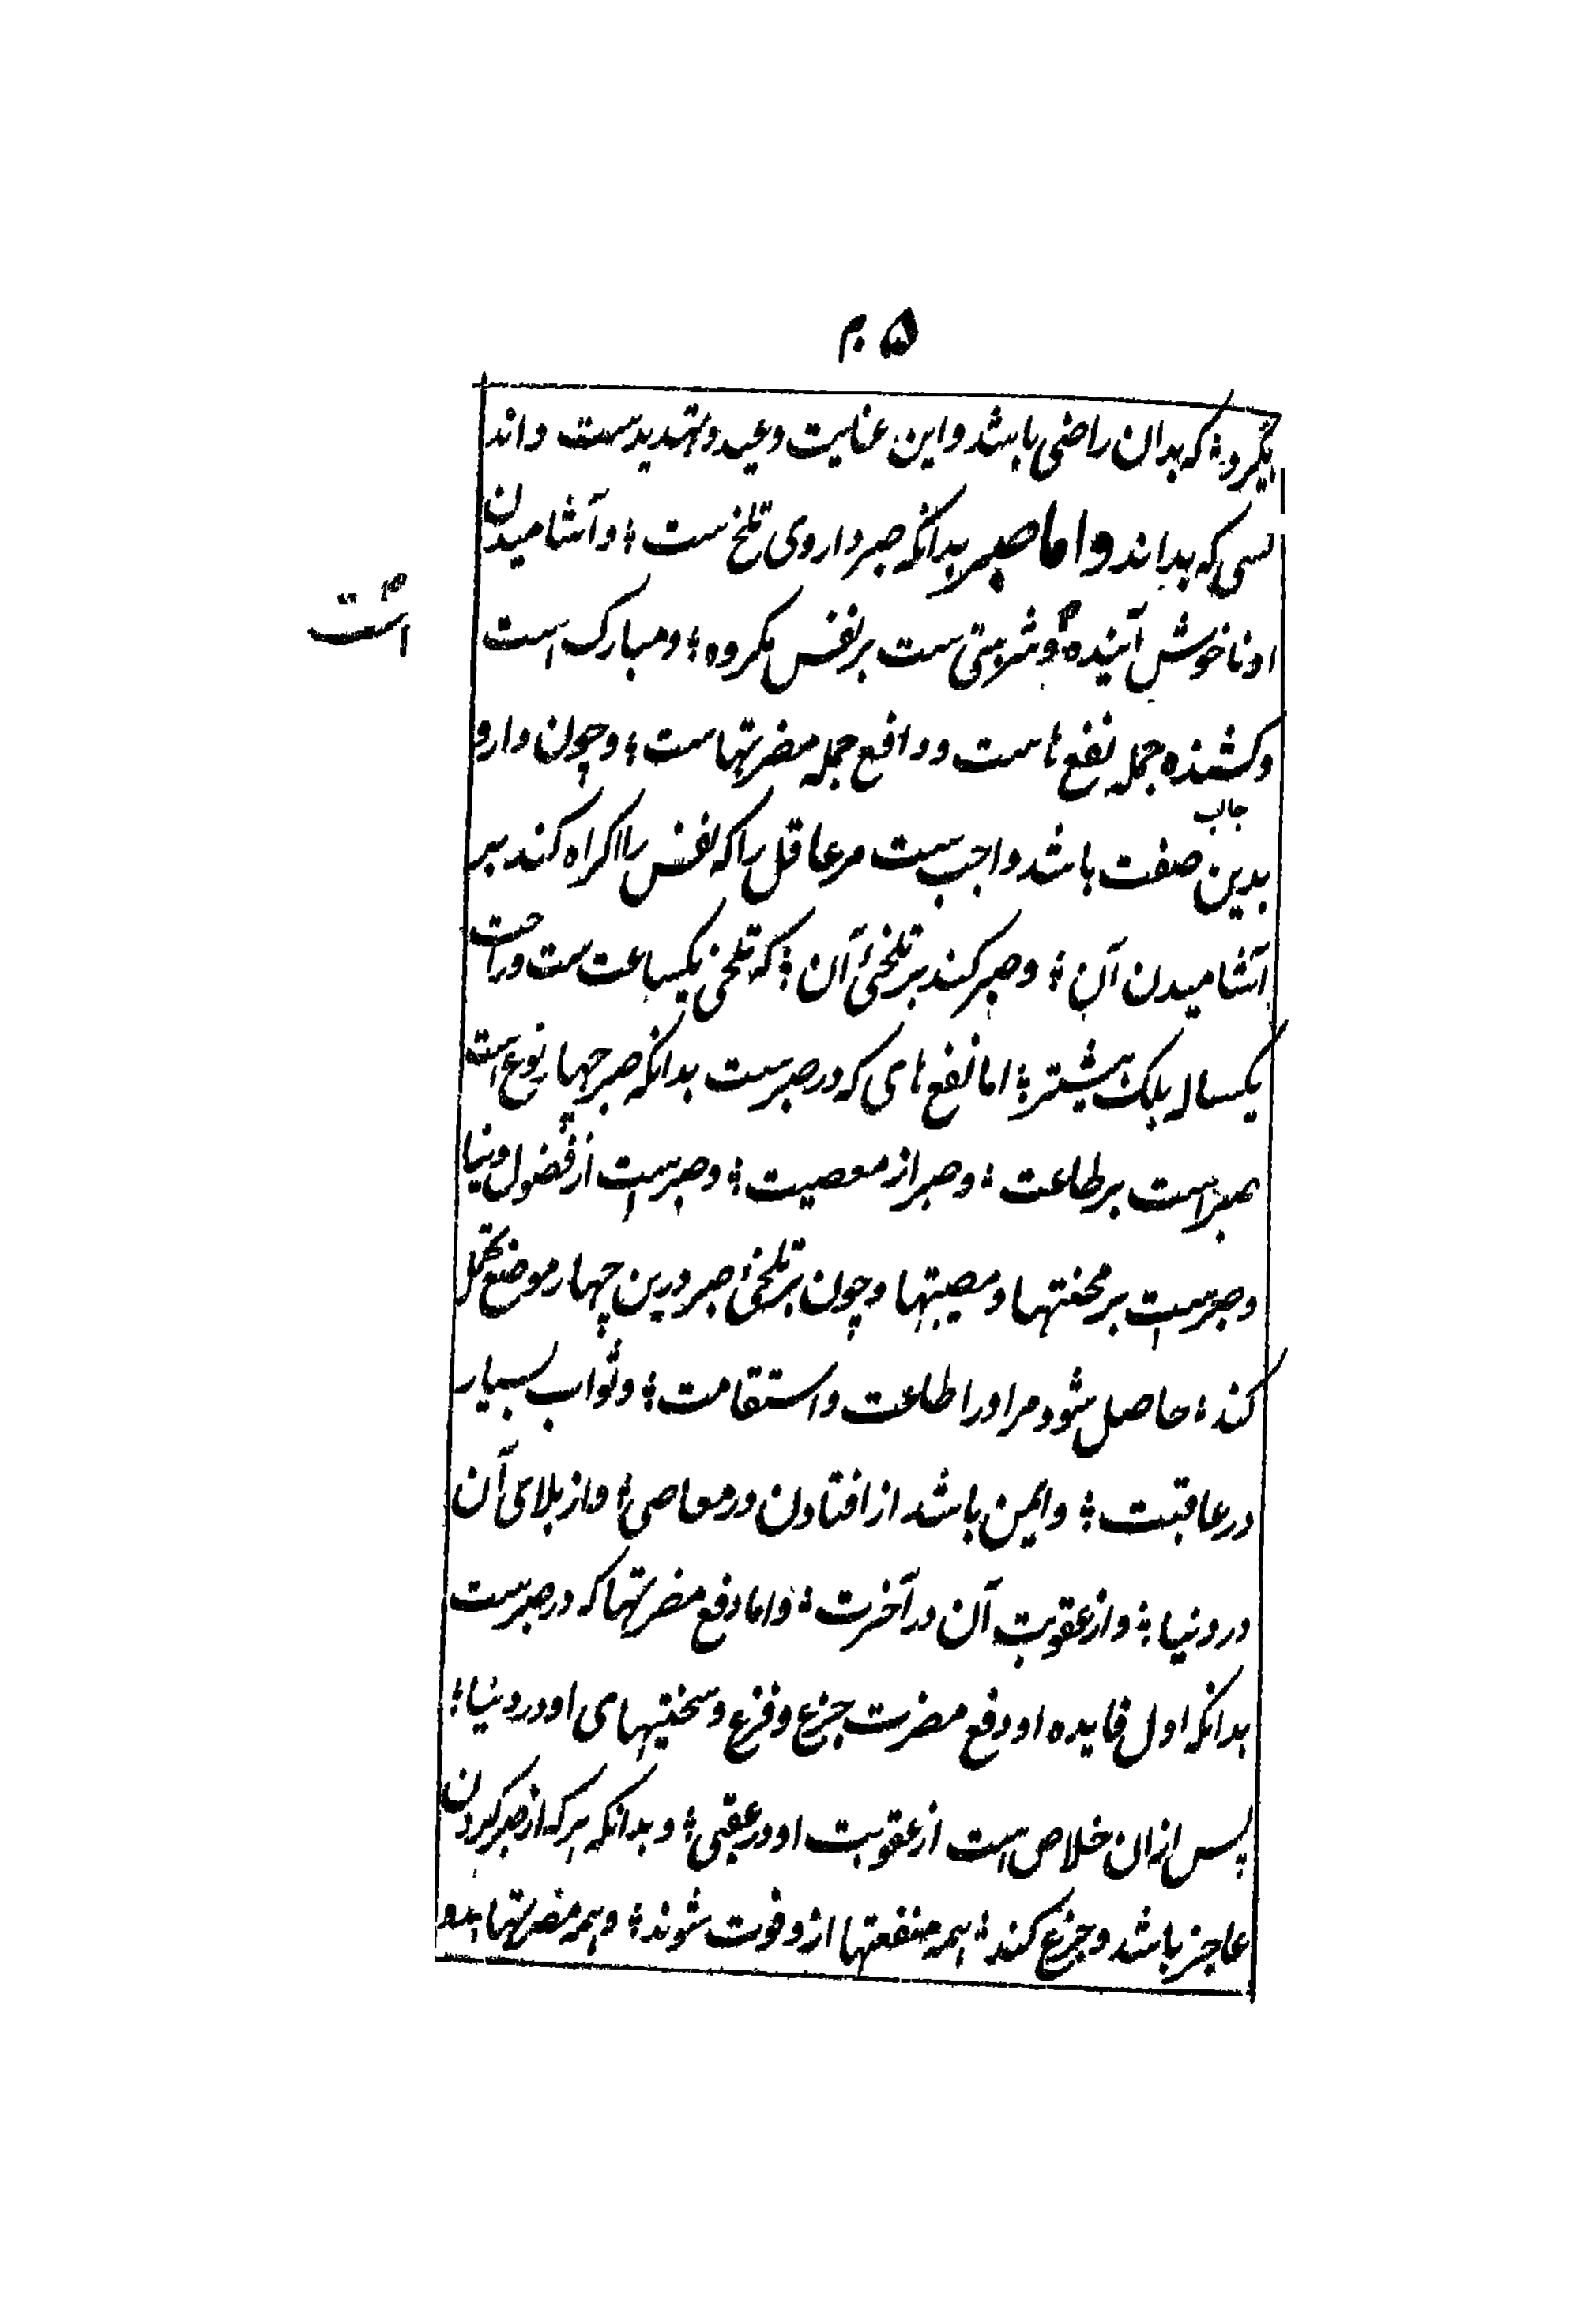 ۲۰۵
بگیرد؛ که بدان راضی باشد و این غایت وعید و تهدیدست داند
کسی که بداند واما صبر بدانکه صبر داروی تلخ ست؛ و آشامیدن
او ناخوش آینده و شربتی ست بر نفس مکروه؛ و مبارک است
است
وکشنده جمله نفع هاست و دافع جمله مضرتهاست؛ و چون دارو
جالب
بدین صفت باشد واجب ست مر عاقل را که نفس را اکراه کند بر
آشامیدن آن؛ و صبر کند بر تلخیٔ آن؛ که تلخی یکساعت ست و راحت
یکسال بلک بیشتر؛ اما نفع های که در صبرست بدانکه صبر چهار نوع است
صبر است بر طاعت؛ و صبر از معصیت؛ و صبر است از فضول دنیا
و صبر است بر محنتها و مصیبتها و چون بر تلخیٔ صبر درین چهار موضع تحمل
کند؛ حاصل شود مر اورا طاعت و استقامت؛ و ثواب بسیار
در عاقبت؛ و ایمن باشد از افتادن در معاصی؛ و از بلای آن
در دنیا؛ و از عقوبت آن در آخرت؛ واما دفع مضرتها که در صبرست
بدانکه اول فایده او دفع مضرت جزع و فزع و سختیهای او در دنیا؛
پس ازان خلاص است از عقوبت او در عقبی؛ و بدانکه هرکه از صبر کردن
عاجز باشد و جزع کند؛ همه منفعتها ازو فوت شوند؛ و همه مضرتها بدو